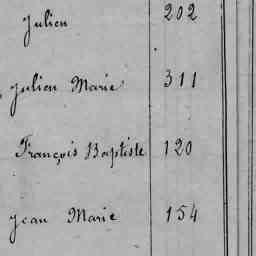 Julien 202
Julien Marie 311
François Baptiste 120
Jean Marie 154